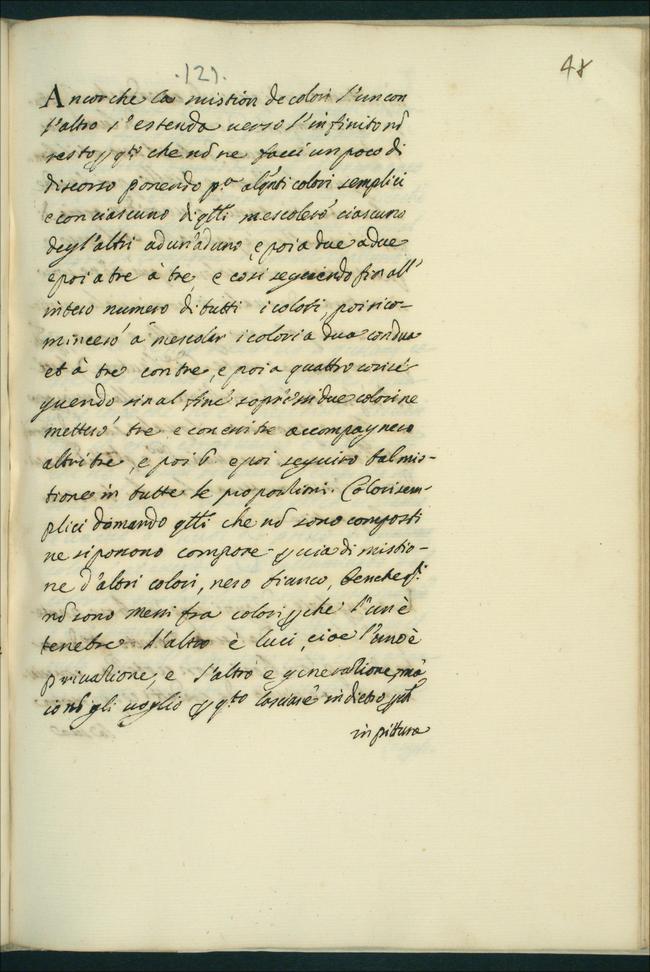 .121.
48
Ancorche la mistion de colori l'un con
l'altro s'estenda uerso l'infinito nō
resto p q̄to che nō ne facci un poco di
discorso ponendo p.ª alq̄nti colori semplici
e con ciascuno di q̄lli mescolerò ciascuno
degl'altri ad un'ad uno, e poi a due a due
e poi a tre à tre, e cosi seguendo fin all'
intero numero di tutti i colori, poi rico-
mincerò à mescolar i colori a dua con dua
et à tre con tre, e poi a quattro cosi se-
guendo sin al fine sopr'essi due colori ne
metterò tre e con essi tre accompagnero
altri tre, e poi 6 e poi seguiro tal mis-
tione in tutte le proportioni. Colori sem-
plici domando q̄lli che nō sono composti
ne si ponono comporre p uia di mistio-
ne d'altri colori, nero bianco, benche q.i
nō sono messi fra colori p che l'un è
tenebre l'altro è luci, cioe l'uno è
priuatione, e l'altro e generatione, mà
io nō gli uoglio p q̄to lasciare in dietro p ch
in pittura